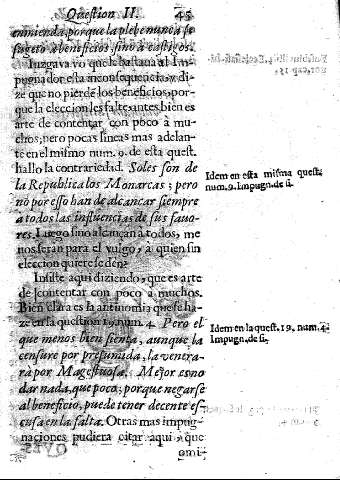 Question II. 45
enmienda, porque la plebe nunca se
sugeto a beneficios, sino a castigos.
Iuzgava yo que le bastaua al Im-
pugnador esta inconsequencia, y di-
ze que no pierdẽ los beneficios, por-
que la eleccion les falte: antes bien es
arte de contentar con poco à mu-
chos; pero pocas lineas mas adelan-
te en el mismo num. 9. de esta quest.
hallo la contrariedad. Soles son de
la Republica los Monarcas; pero
no por esso han de alcançar siempre
a todos las influencias de sus fauo-
res. Luego sino alcançan à todos, me
nos seran para el vulgo, a quien sin
eleccion quiere se den.
Insiste aqui diziendo, que es arte
de contentar con poco a muchos.
Bien clara es la antinomia que se ha-
ze en la question 19. num. 4. Pero el
que menos bien sienta, aunque la
censure por presumida, la venera-
rà por Magestuosa. Mejor es no
dar nada, que poco; porque negarse
al beneficio, puede tener decente es-
cusa en la falta. Otras mas impug-
naciones pudiera citar aqui, que
omi-
Idem en esta misma quest.
num. 9. Impugn. de si.
Idem en la quest. 19. num. 4.
Impugn. de si.